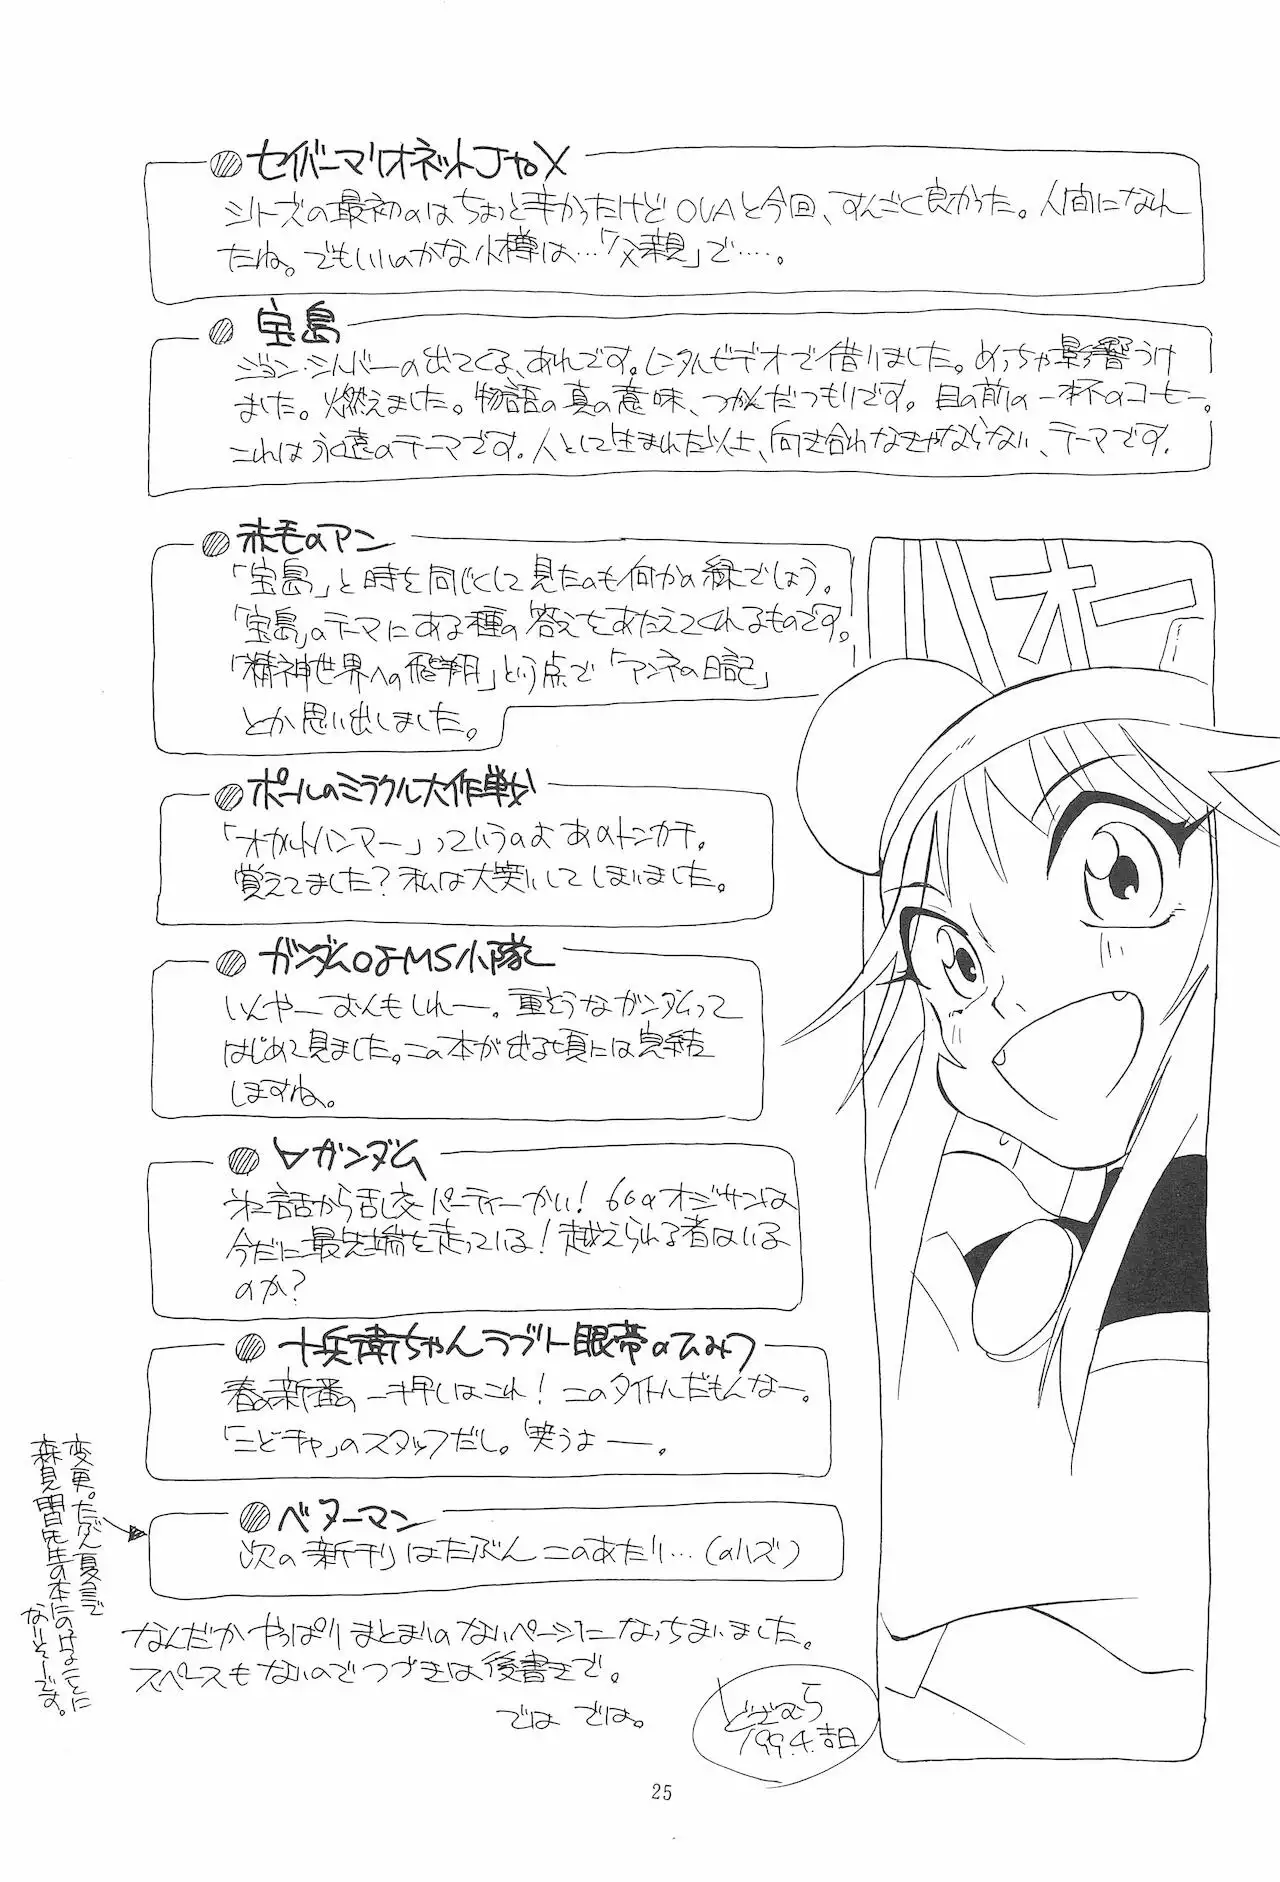 セイバーマリオネットJtoX
シリーズの最初のはちょっと辛かったけどOVAと今回、すんごく良かった。人間になれ
たね。でもいいのかな小樽は…「父親」で…。
宝島
ジョン・シルバーの出てくる、あれです。レンタルビデオで借りました。めっちゃ影響うけ
ました。燃えました。物語の真の意味、つかんだつもりです。目の前の一杯のコーヒー。
これは永遠のテーマです。人として生まれた以上、向き合わなきゃならない、テーマです。
赤毛のアン
「宝島」と時を同じくして見たのも何かの縁でしょう。
「宝島」のテーマにある種の答えをあたえてくれるものです。
「精神世界への飛翔」という点で「アンネの日記」
とか思い出しました。
オー
ポールのミラクル大作戦
「オカルトハンマー」っていうのよあのトンカチ。
覚えてました？私は大笑いしてしまいました。
ガンダム08MS小隊
いんやーおんもしれー。重そうなガンダムって
はじめて見ました。この本が出る頃には完結
しますね。
∀ガンダム
第2話から乱交パーティーかい！60のオジサンは
今だに最先端を走っている！越えられる者はいる
のか？
十兵衛ちゃんラブリー眼帯のひみつ
春の新番の一押しはこれ！このタイトルだもんなー。
「こどチャ」のスタッフだし。笑うよー。
ベターマン
次の新刊はたぶんこのあたり…（のハズ）
変更。たぶん夏コミで
森見明先生の本にのせることに
なりそーです。
なんだかやっぱりまとまりのないページになっちまいました。
スペースもないのでつづきは後書きで。
では では。
どざむら
199.4.吉日
25